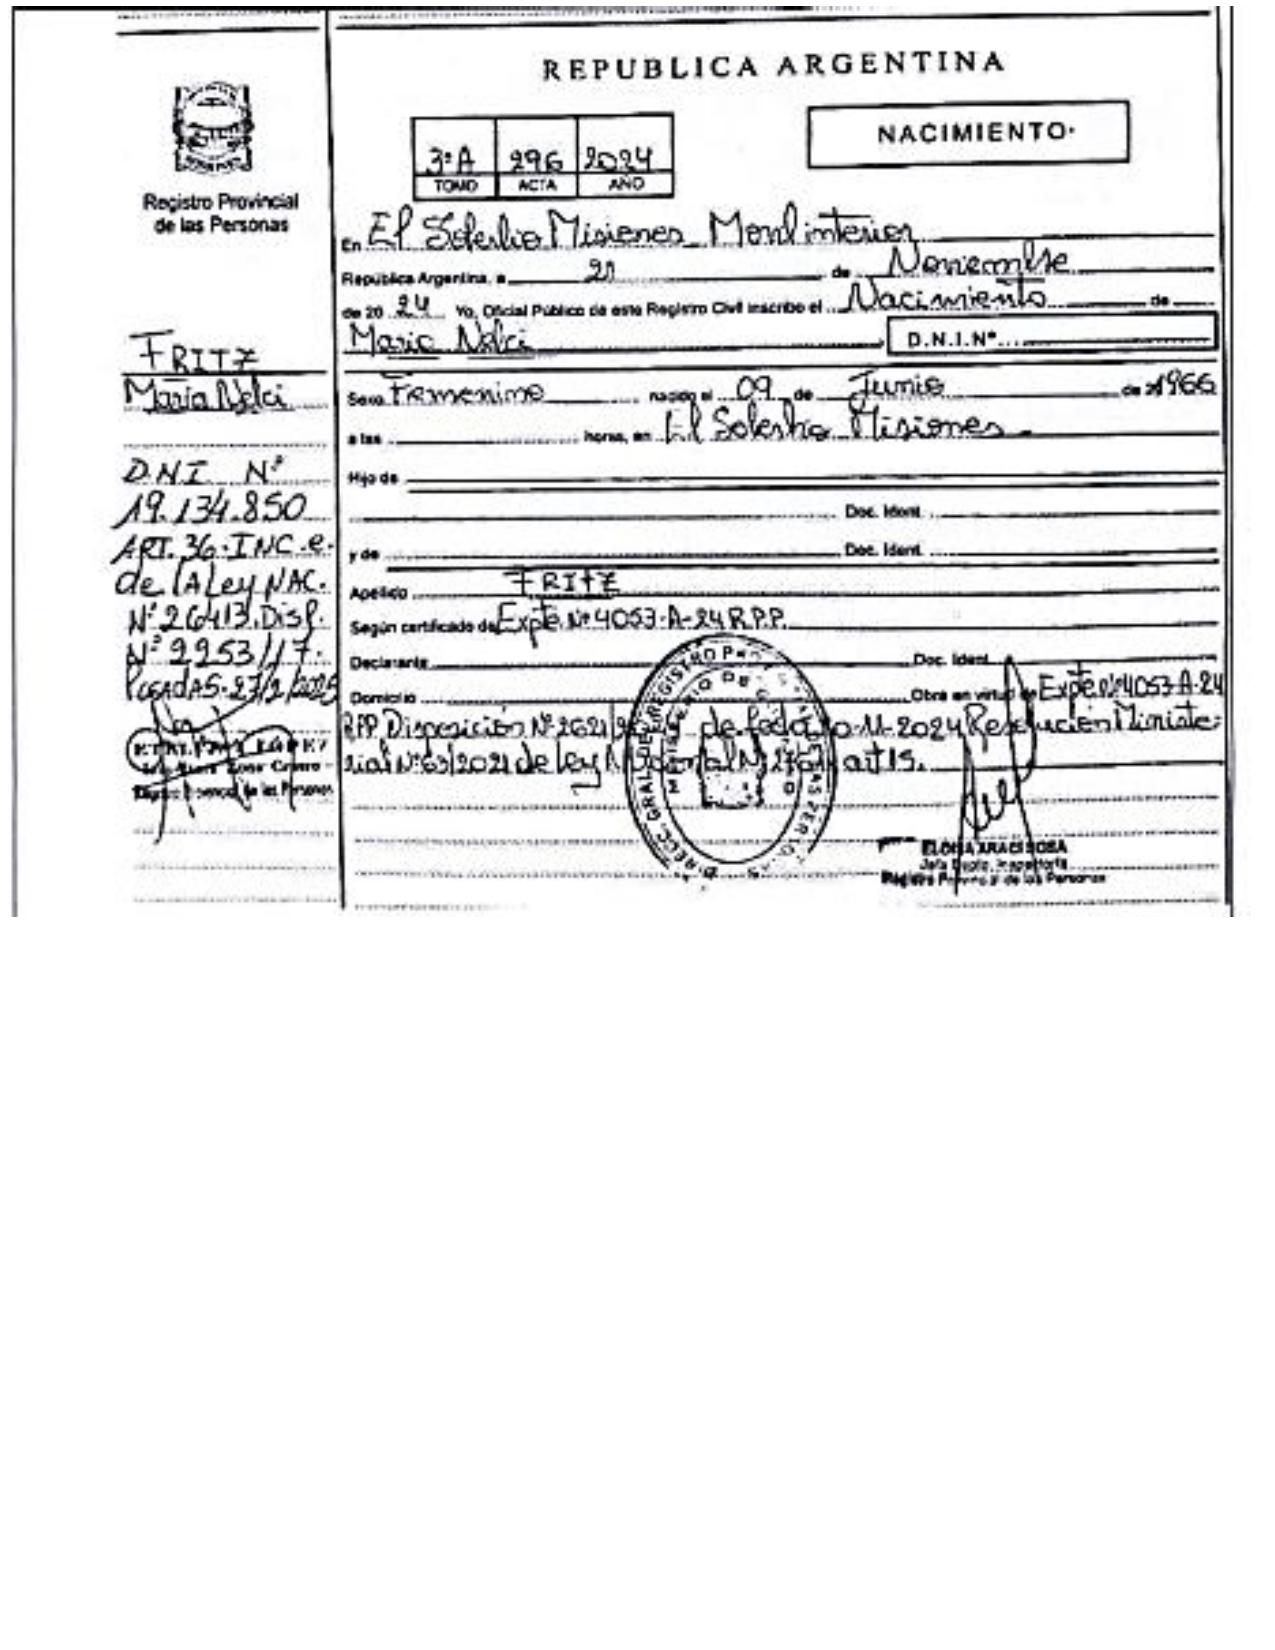 REPUBLICA ARGENTINA
NACIMIENTO
3ºA 296 2024
TOMO ACTA AÑO
Registro Provincial
de las Personas
En El Soberbio Misiones Mond interior
República Argentina, a 21 de Noviembre
de 20 24 Yo, Oficial Público de este Registro Civil inscribo el Nacimiento de
Maria Nelci D.N.I.Nº
Sexo Femenino nacido el 09 de Junio de 1966
a las horas, en El Soberbio Misiones
Hijo de
Doc. Ident.
y de Doc. Ident.
Apellido FRITZ
Según certificado de Expte Nº 4053-A-24 R.P.P.
Declarante Doc. Ident.
Domicilio Obra en virtud de Expte Nº 4053-A-24
RPP Disposición Nº 2621 de fecha 11-2024 Resolución Ministe-
rial Nº 63/2021 de Ley art 15.
ELOISA ARACI SOSA
Jefa Dpto. Inspectoría
Registro Provincial de las Personas
FRITZ
María Nelci
D.N.I. Nº
19.134.850
ART. 36. INC. e.
de la Ley NAC.
Nº 26413. Disp.
Nº 2253/17.
Posadas. 27/2/2025
LOPEZ
Registro Provincial de las Personas